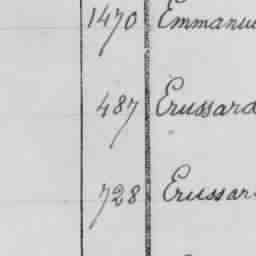 1470 Emmanue
487 Erussard
728 Erussar